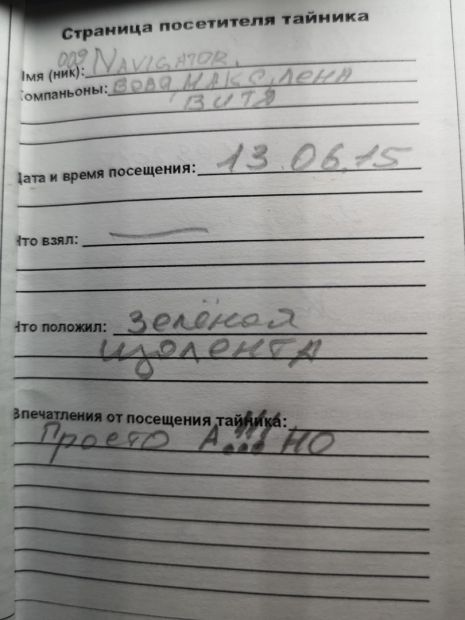 Страница посетителя тайника
Имя (ник): 009 NAVIGATOR.
Компаньоны: ВОВА, МАКС, ЛЕНА
ВИТЯ
Дата и время посещения: 13.06.15
Что взял: —
Что положил: Зелёная
изолента
Впечатления от посещения тайника:
Просто А!!! НО